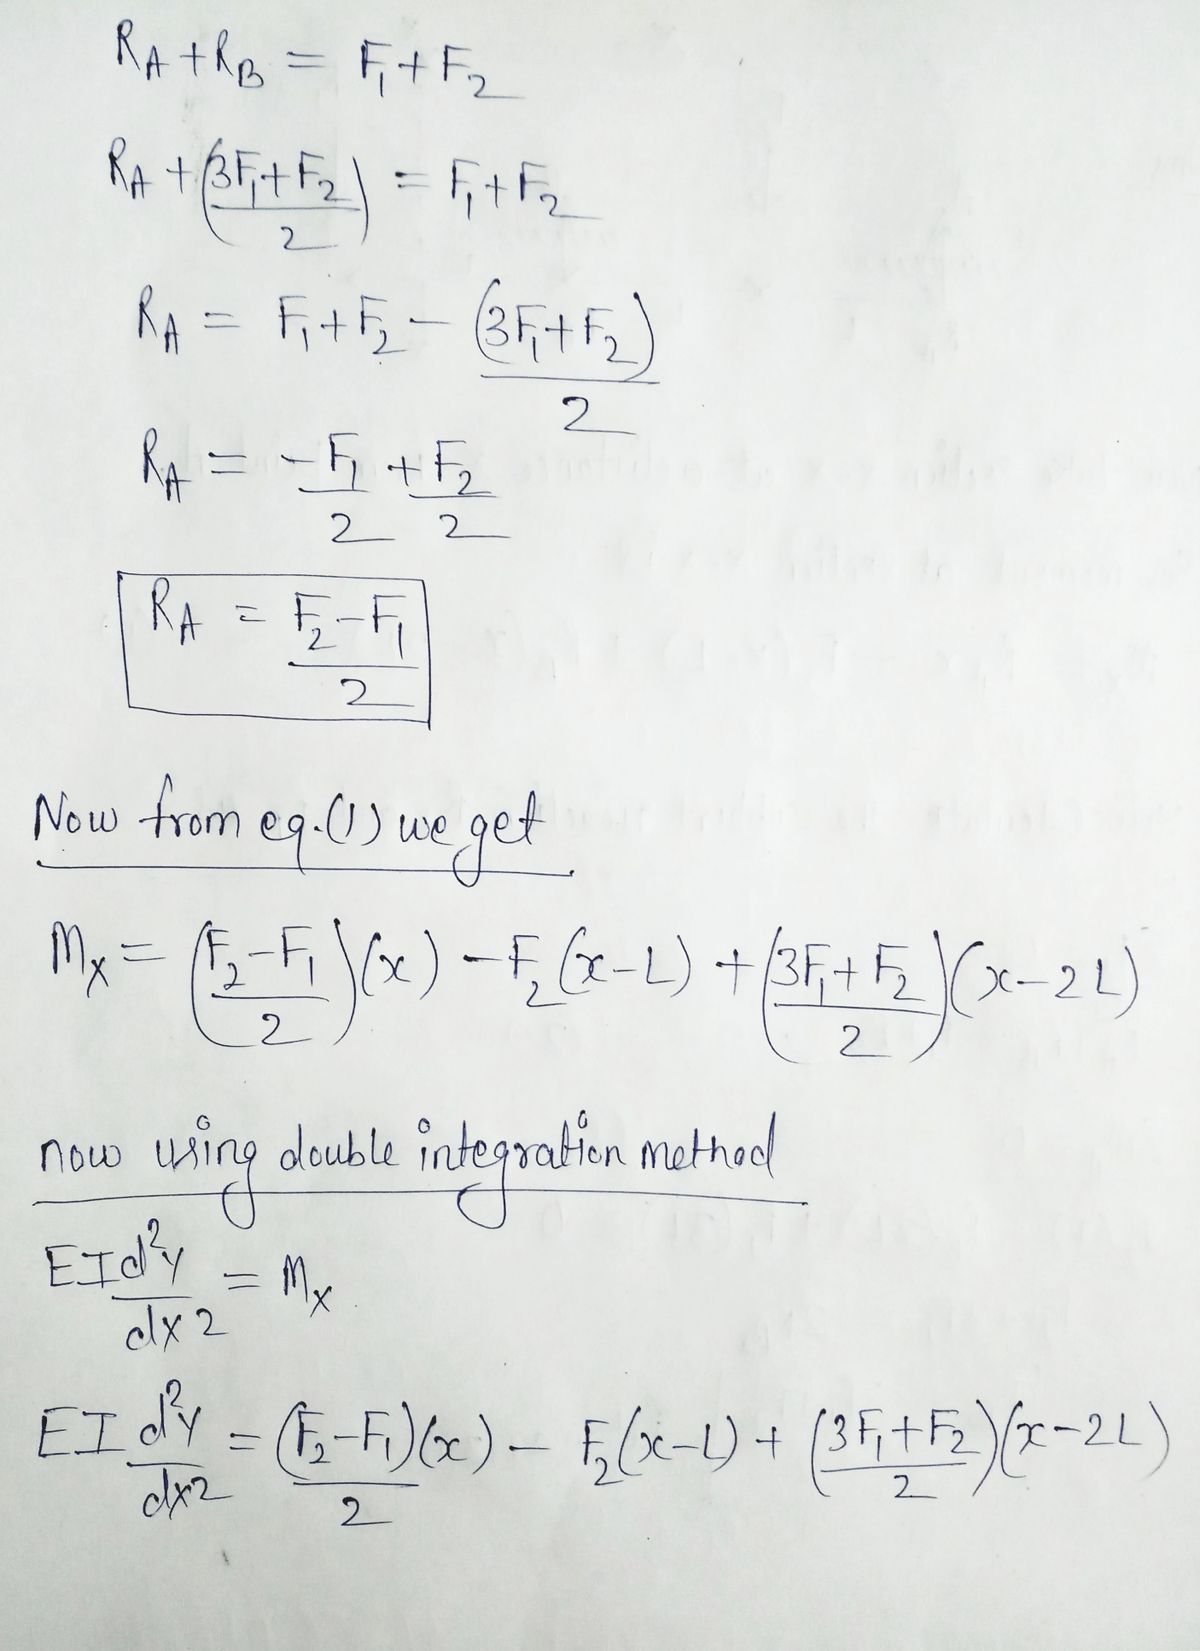 R_A + R_B = F_1 + F_2
R_A + (3F_1 + F_2 / 2) = F_1 + F_2
R_A = F_1 + F_2 - (3F_1 + F_2) / 2
R_A = -F_1/2 + F_2/2
R_A = F_2 - F_1 / 2
Now from eq.(1) we get
M_x = (F_2 - F_1 / 2)(x) - F_2(x-L) + (3F_1 + F_2 / 2)(x-2L)
now using double integration method
EI d²y/dx2 = M_x
EI d²y/dx2 = (F_2 - F_1)/2 (x) - F_2(x-L) + (3F_1 + F_2 / 2)(x-2L)